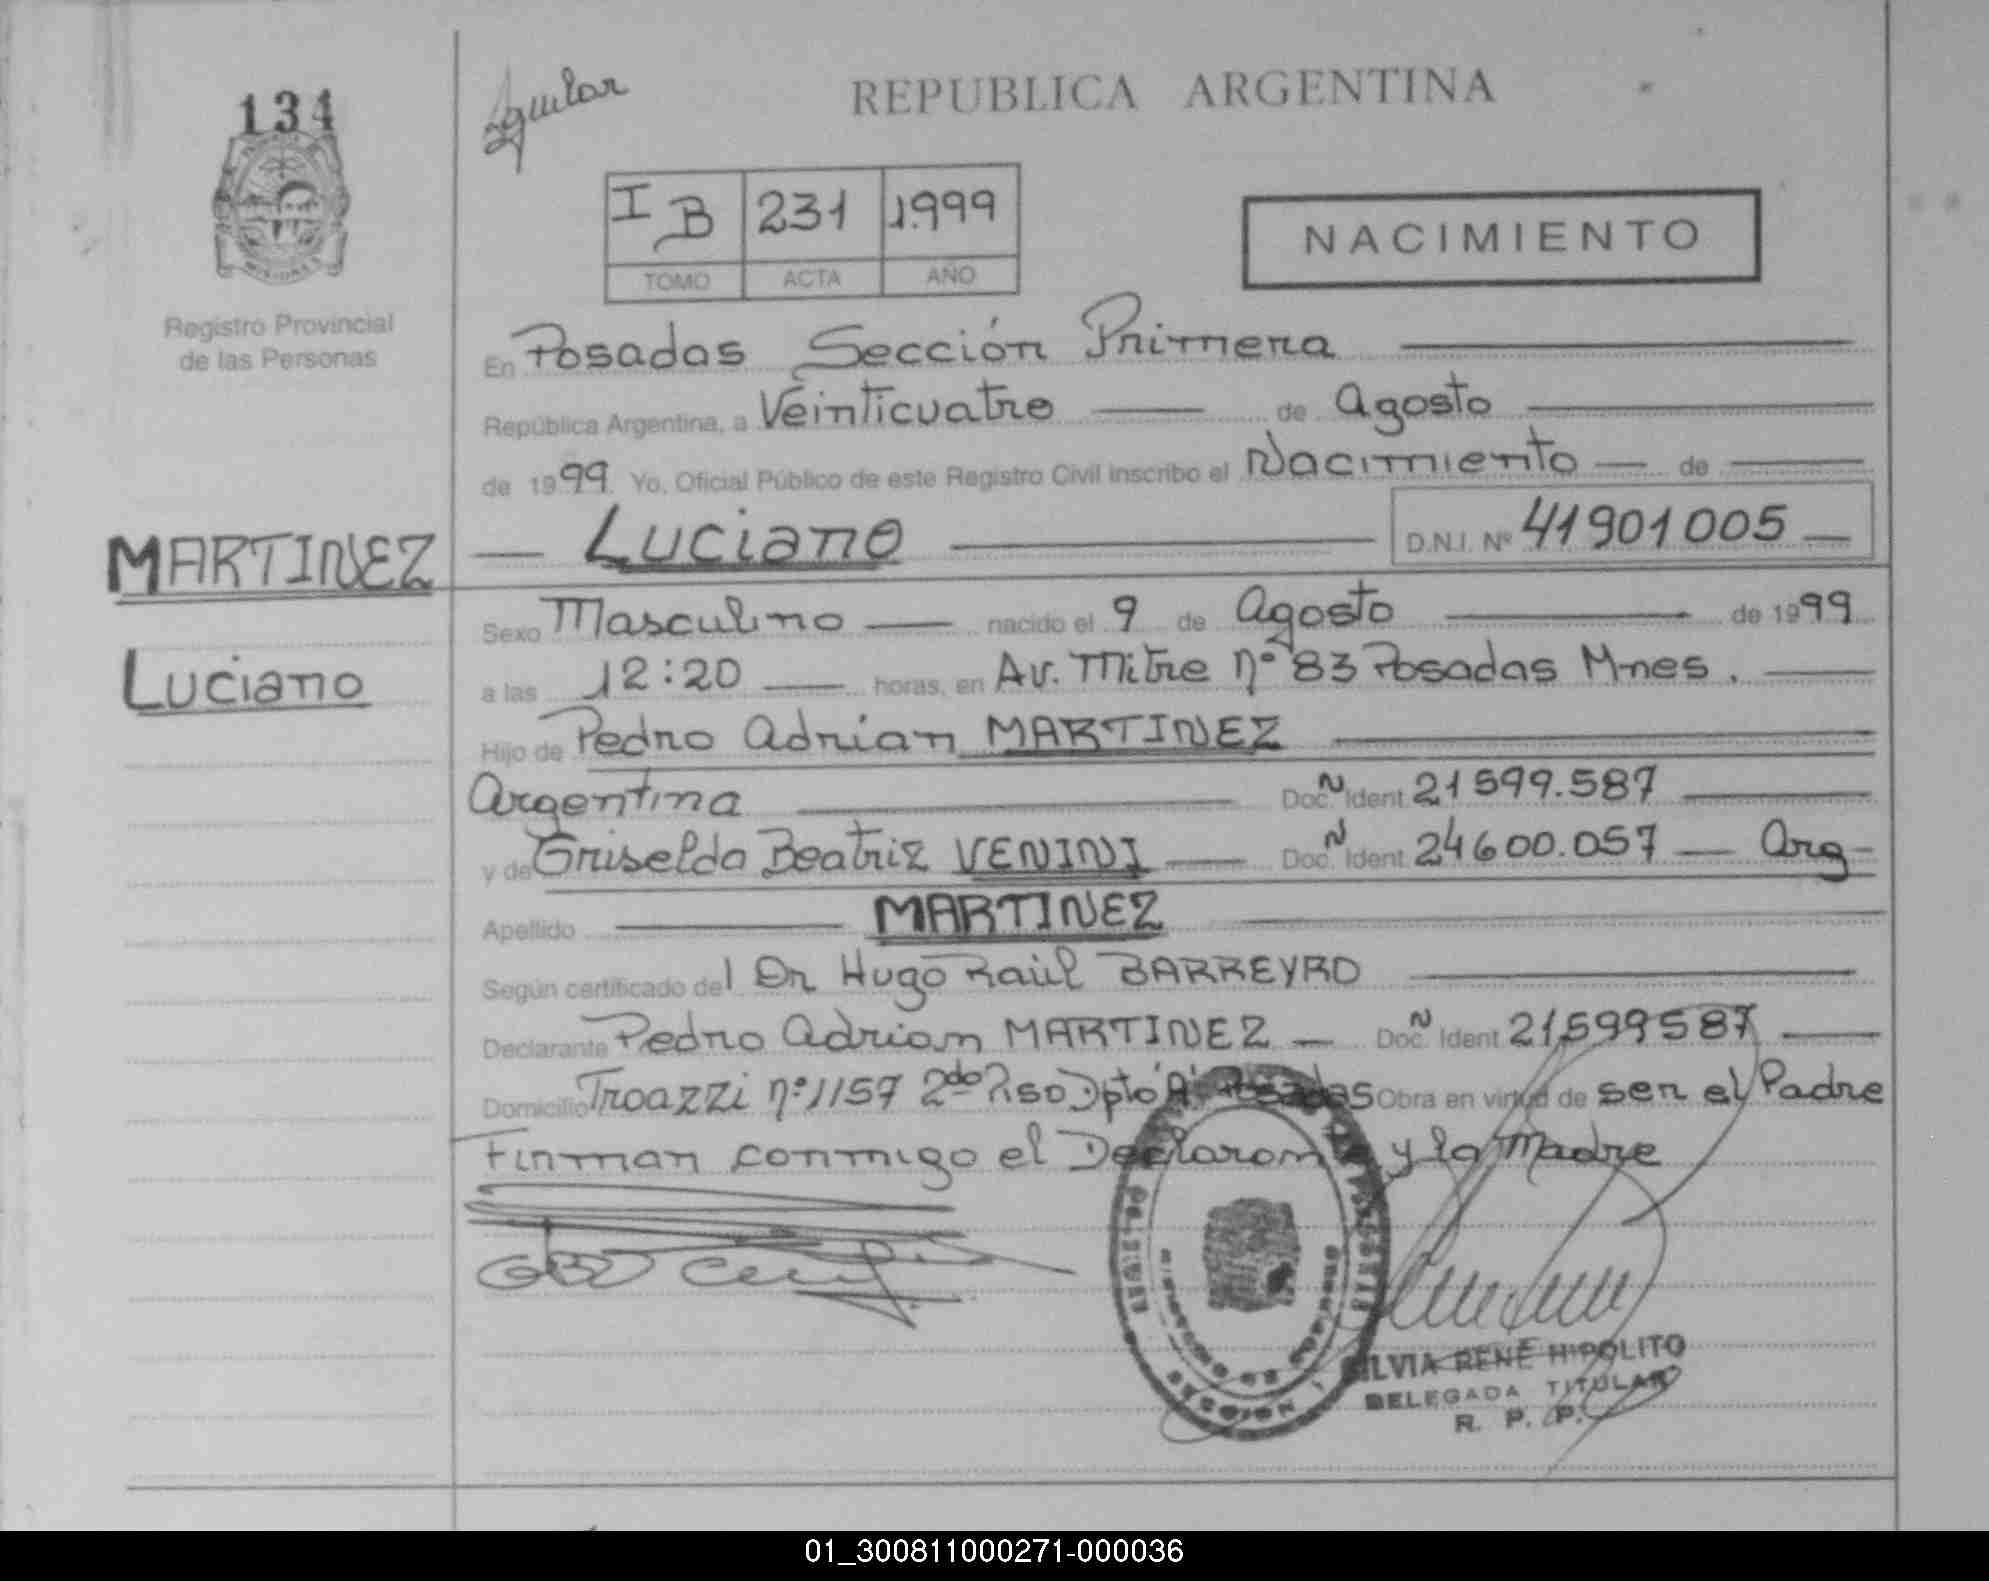 134
Registro Provincial
de las Personas
MARTINEZ
Luciano
Aguilar
REPUBLICA ARGENTINA
I B 231 1.999
TOMO ACTA AÑO
NACIMIENTO
En Posadas Sección Primera
República Argentina, a Veinticuatro de Agosto
de 1999 Yo, Oficial Público de este Registro Civil inscribo el Nacimiento de
Luciano D.N.I. Nº 41901005
Sexo Masculino nacido el 9 de Agosto de 1999
a las 12:20 horas, en Av. Mitre nº 83 Posadas Mnes.
Hijo de Pedro Adrian MARTINEZ
Argentina Doc. N Ident 21599.587
y de Griselda Beatriz VENINI Doc. N Ident. 24600.057 Arg
Apellido MARTINEZ
Según certificado del Dr Hugo Raúl BARREYRO
Declarante Pedro Adrian MARTINEZ Doc. N Ident 21599587
Domicilio nº 1157 2do Piso Dpto "A" Posadas Obra en virtud de ser el Padre
Firman conmigo el Declarante y la Madre
SILVIA RENÉ HIPOLITO
DELEGADA TITULAR
R. P. P.
01_300811000271-000036